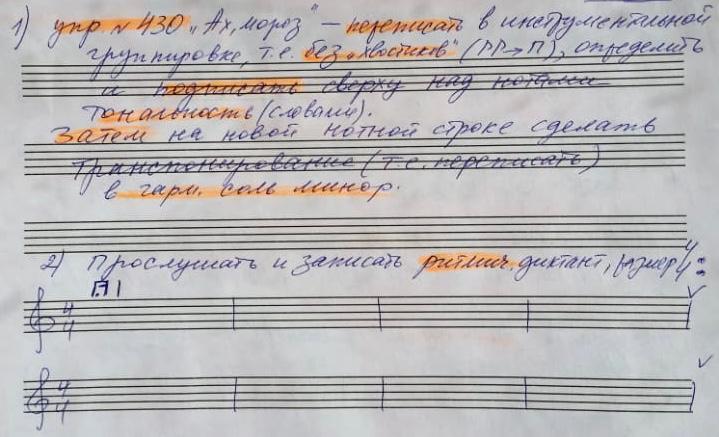 1) упр. № 430 „Ах, мороз" — переписать в инструментальной
группировке, т.е. без „хвостиков" (♪♪→♫), определить
и подписать сверху над нотами
тональность (словами).
Затем на новой нотной строке сделать
транспонирование (т.е. переписать)
в гарм. соль минор.
2) Прослушать и записать ритмич. диктант, размер 4/4:
4/4
4/4